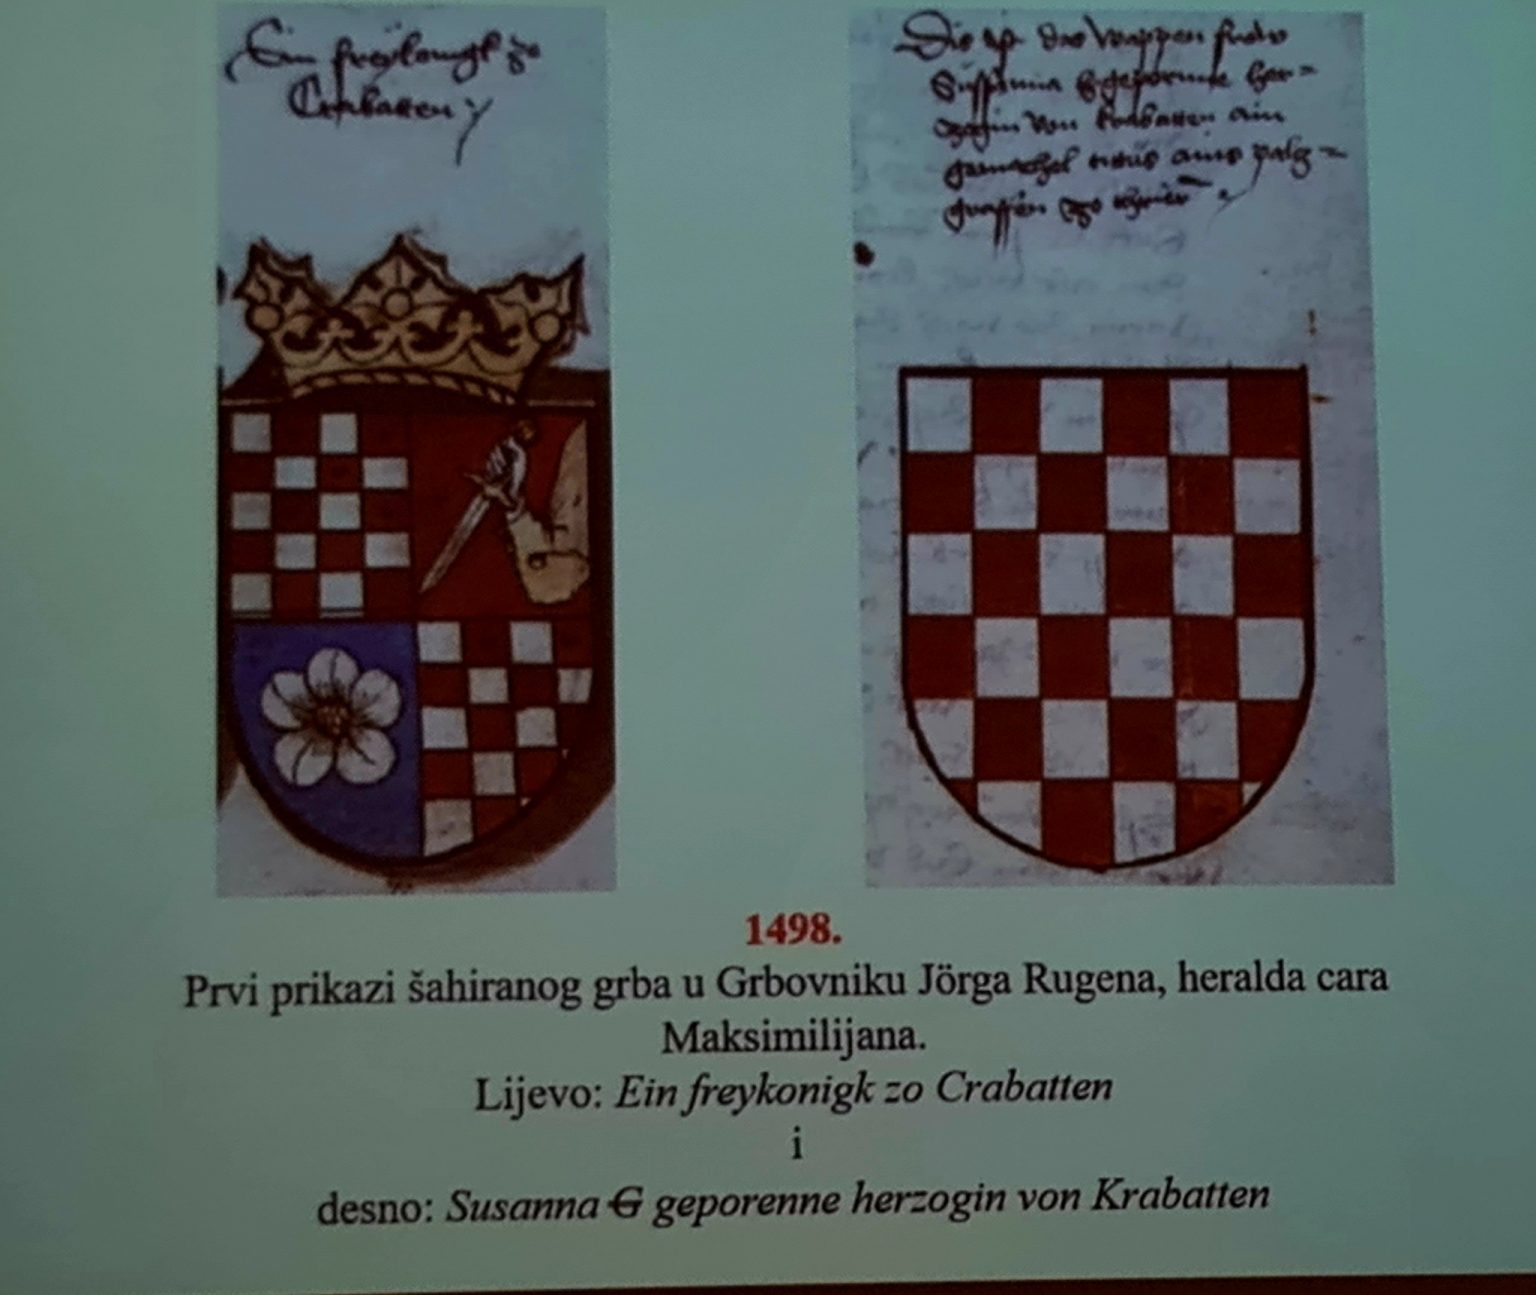 Ein freykonigk zo
Crabatten
das wappen
Susanna G̶ geporenne her=
zogin von krabatten ain
gemachel ains palcz=
graffen zo
1498.
Prvi prikazi šahiranog grba u Grbovniku Jörga Rugena, heralda cara
Maksimilijana.
Lijevo: Ein freykonigk zo Crabatten
i
desno: Susanna G̶ geporenne herzogin von Krabatten